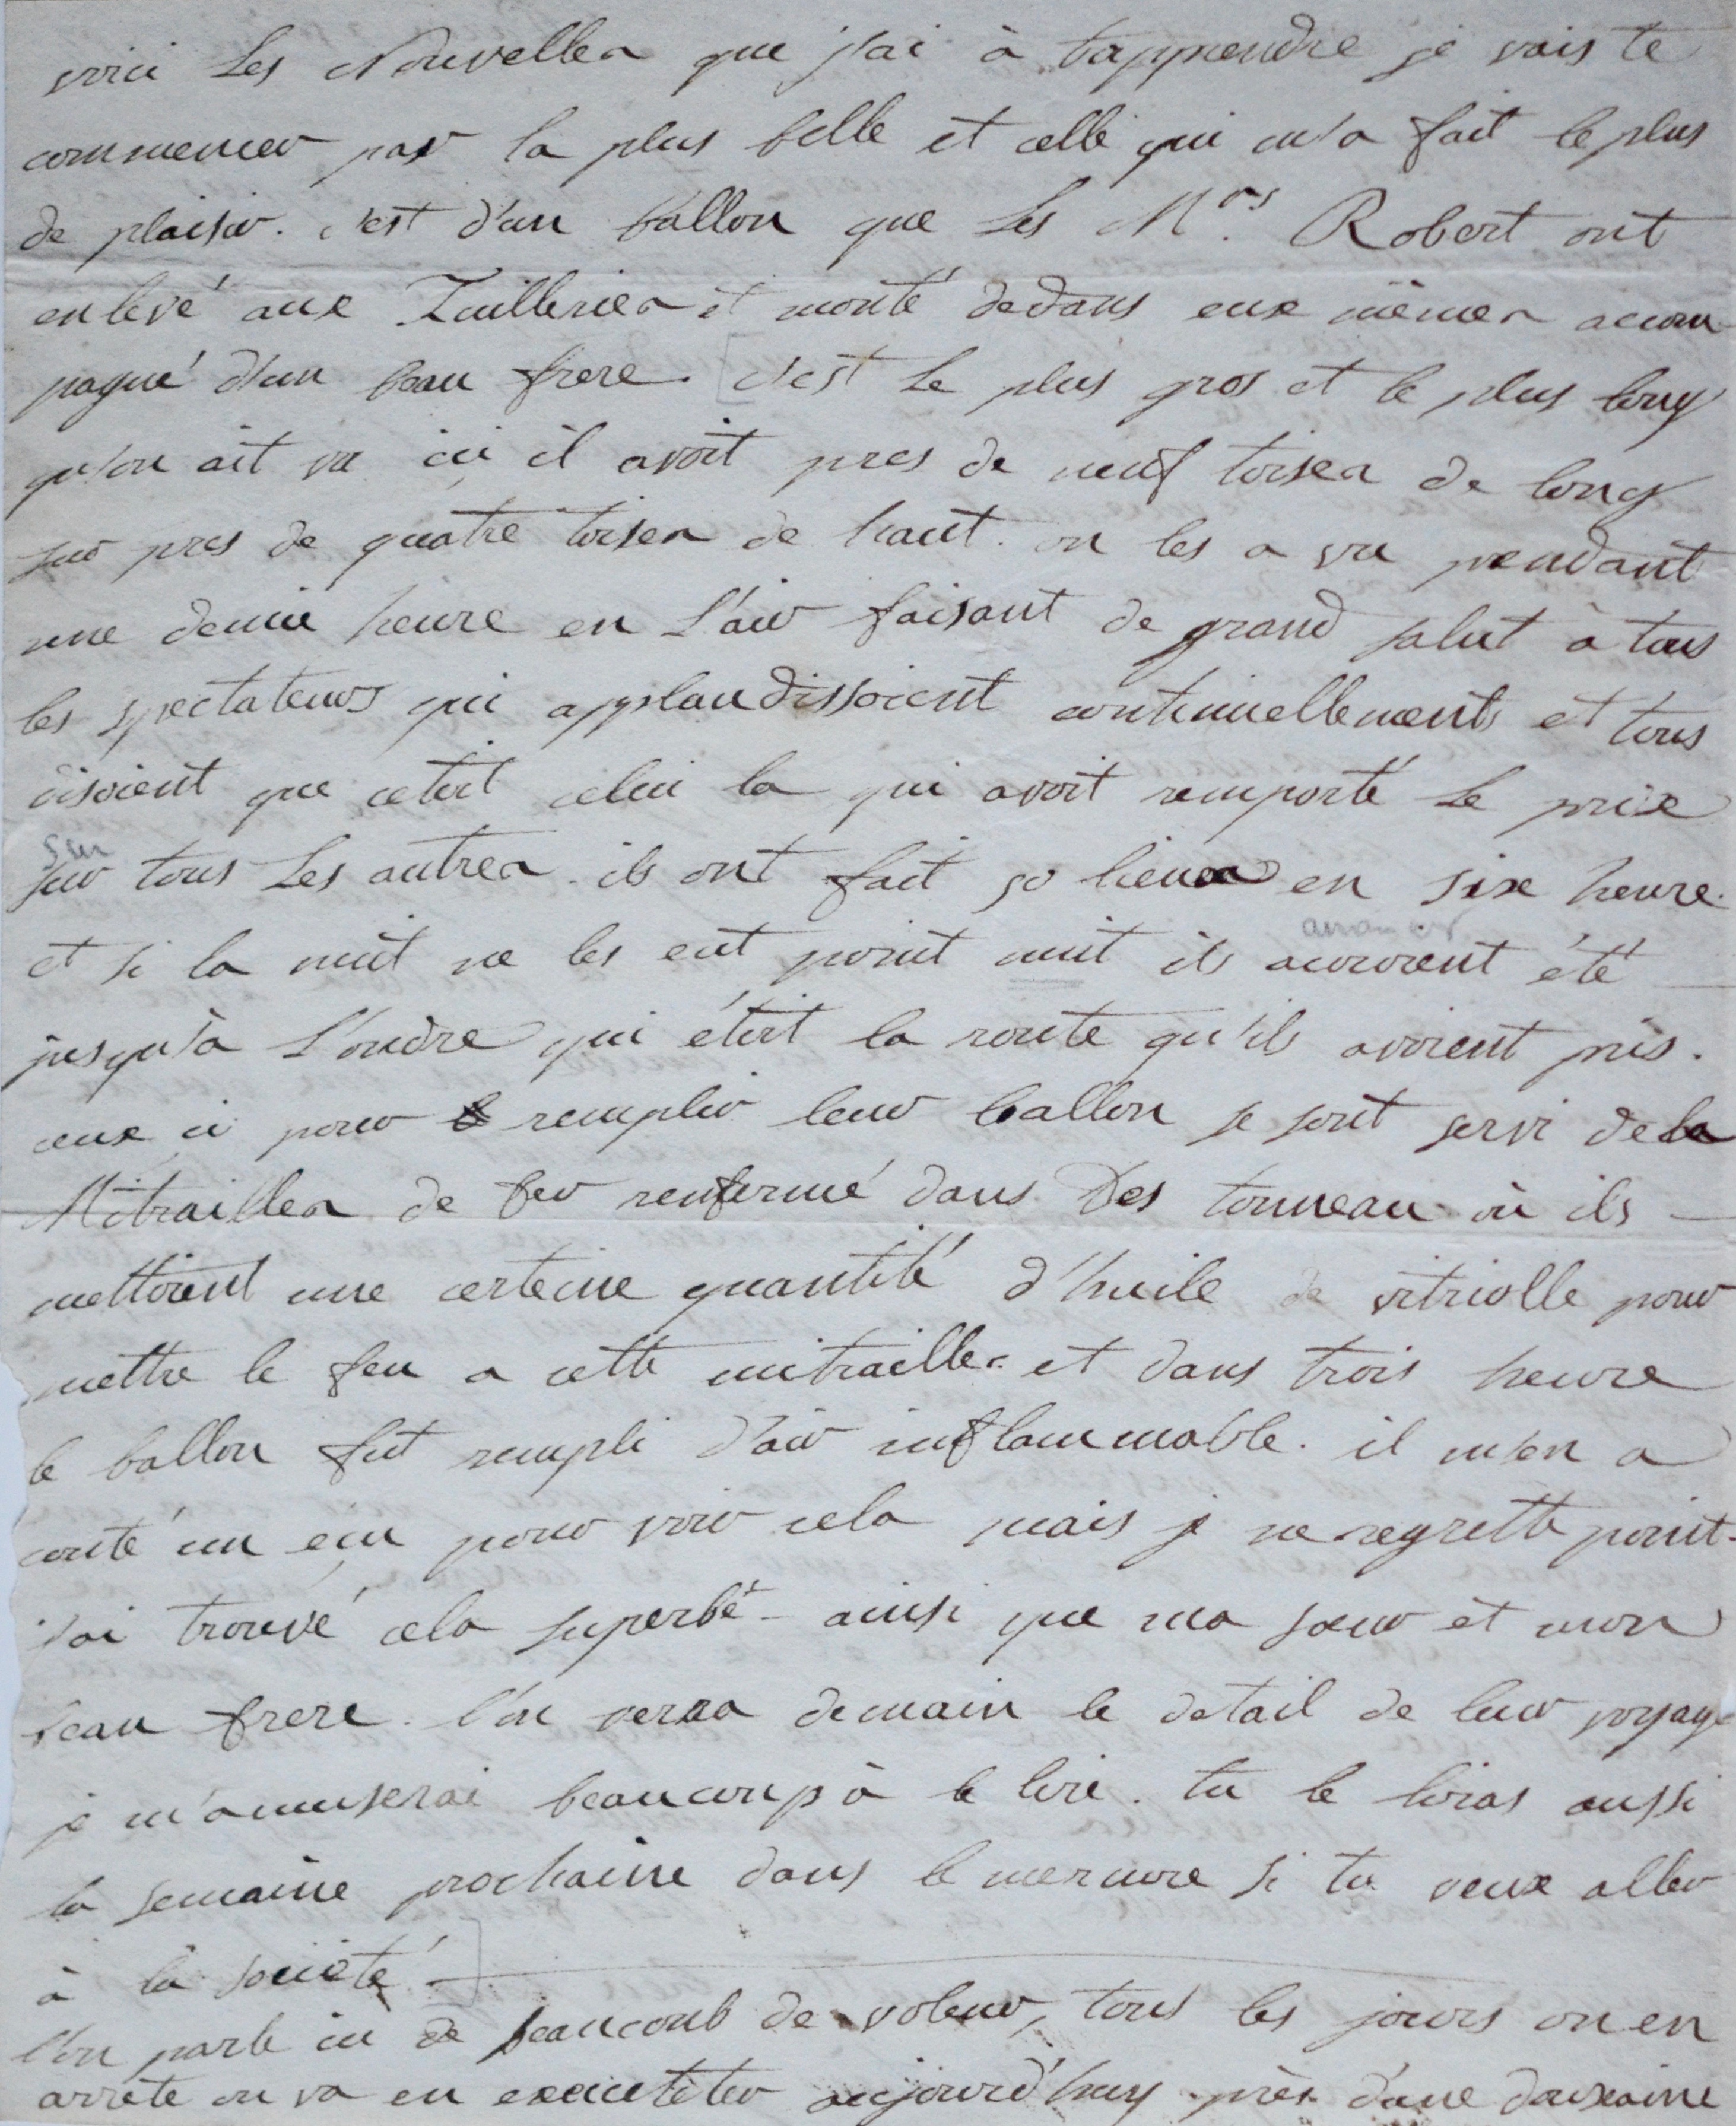 voici Les Nouvelles que j'ai à tapprendre je vais te
commencer par la plus belle et celle qui m'a fait le plus
de plaisir. c'est d'un ballon que Les Mrs. Robert ont
enlevé aux Tuilleries et monté dedans eux mêmes accom
pagné d'un beau frere. [c'est Le plus gros et le plus long
qu'on ait vu ici il avoit pres de neuf toises de long
sur pres de quatre toises de haut. on les a vu pendant
une demie heure en L'air faisant de grand salut à tous
les spectateurs qui applaudissoient continuellements et tous
disoient que cetoit celui la qui avoit remporté Le prix
sur
sur tous Les autres. ils ont fait 50 lieues en six heure.
et si la nuit ne les eut point nuit ils auroient été
jusqu'à L'ondre qui étoit la route qu'ils avoient pris.
ceux ci pour remplir leur ballon se sont servi de la
Mitrailles de fer renfermé dans Des tonneau où ils
mettoient une certeine quantité d'huile de vitriolle pour
mettre le feu a cette mitrailles et dans trois heure
le ballon fut rempli d'air inflammable. il m'en a
couté un ecu pour voir cela mais je ne regrette point.
j'ai trouvé cela superbé - ainsi que ma sœur et mon
beau frere. l'on verra demain le detail de leur voyage
je m'amuserai beaucoup à le lire. tu le liras aussi
la semaine prochaine dans le mercure si tu veux aller
à la societé.]
l'on parle ici de beaucoub de voleur, tous les jours on en
arrête on va en executeter aujourd'huy près d'une douzaine